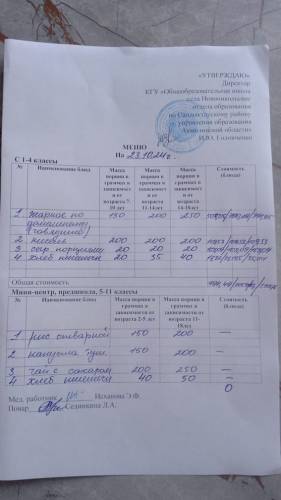 «УТВЕРЖДАЮ»
Директор
КГУ «Общеобразовательная школа
села Новоникольское
отдела образования
по Сандыктаускому району
управления образования
Акмолинской области»
И.Ю. Головченко
МЕНЮ
На 23.10.24г.
С 1-4 классы
№ Наименование блюд Масса порции в граммах в зависимости от возраста 7-10 лет Масса порции в граммах в зависимости от возраста 11-14лет Масса порции в граммах в зависимости от возраста 14-18лет Стоимость (блюда)
1 Жаркое по домашнему (говядина) 150 200 250
2 Кисель 200 200 200
3 сыр порциями 20 20 20
4 хлеб пшеничн 20 35 40
Общая стоимость
Мини-центр, предшкола, 5-11 классы
№ Наименование блюд Масса порции в граммах в зависимости от возраста 2-5 лет Масса порции в граммах в зависимости от возраста 11-18лет Стоимость (блюда)
1 рис отварной 150 200 —
2 капуста туш. 150 200 —
3 чай с сахаром 200 250 —
4 хлеб пшеничн 40 50 —
0
Мед. работник Исханова Э.Ф.
Повар Сединкина Л.А.